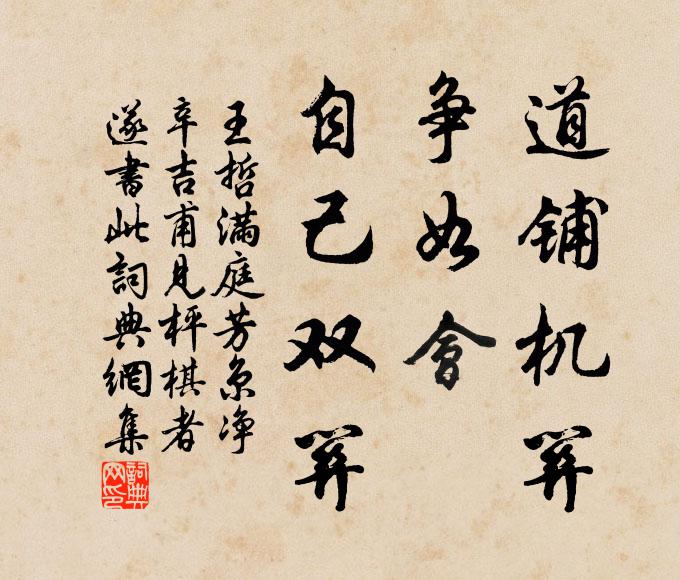 道铺机关
争如會
自己双关
王哲满庭芳京净
辛吉甫見枰棋者
遂書此詞典網集
詞典网印